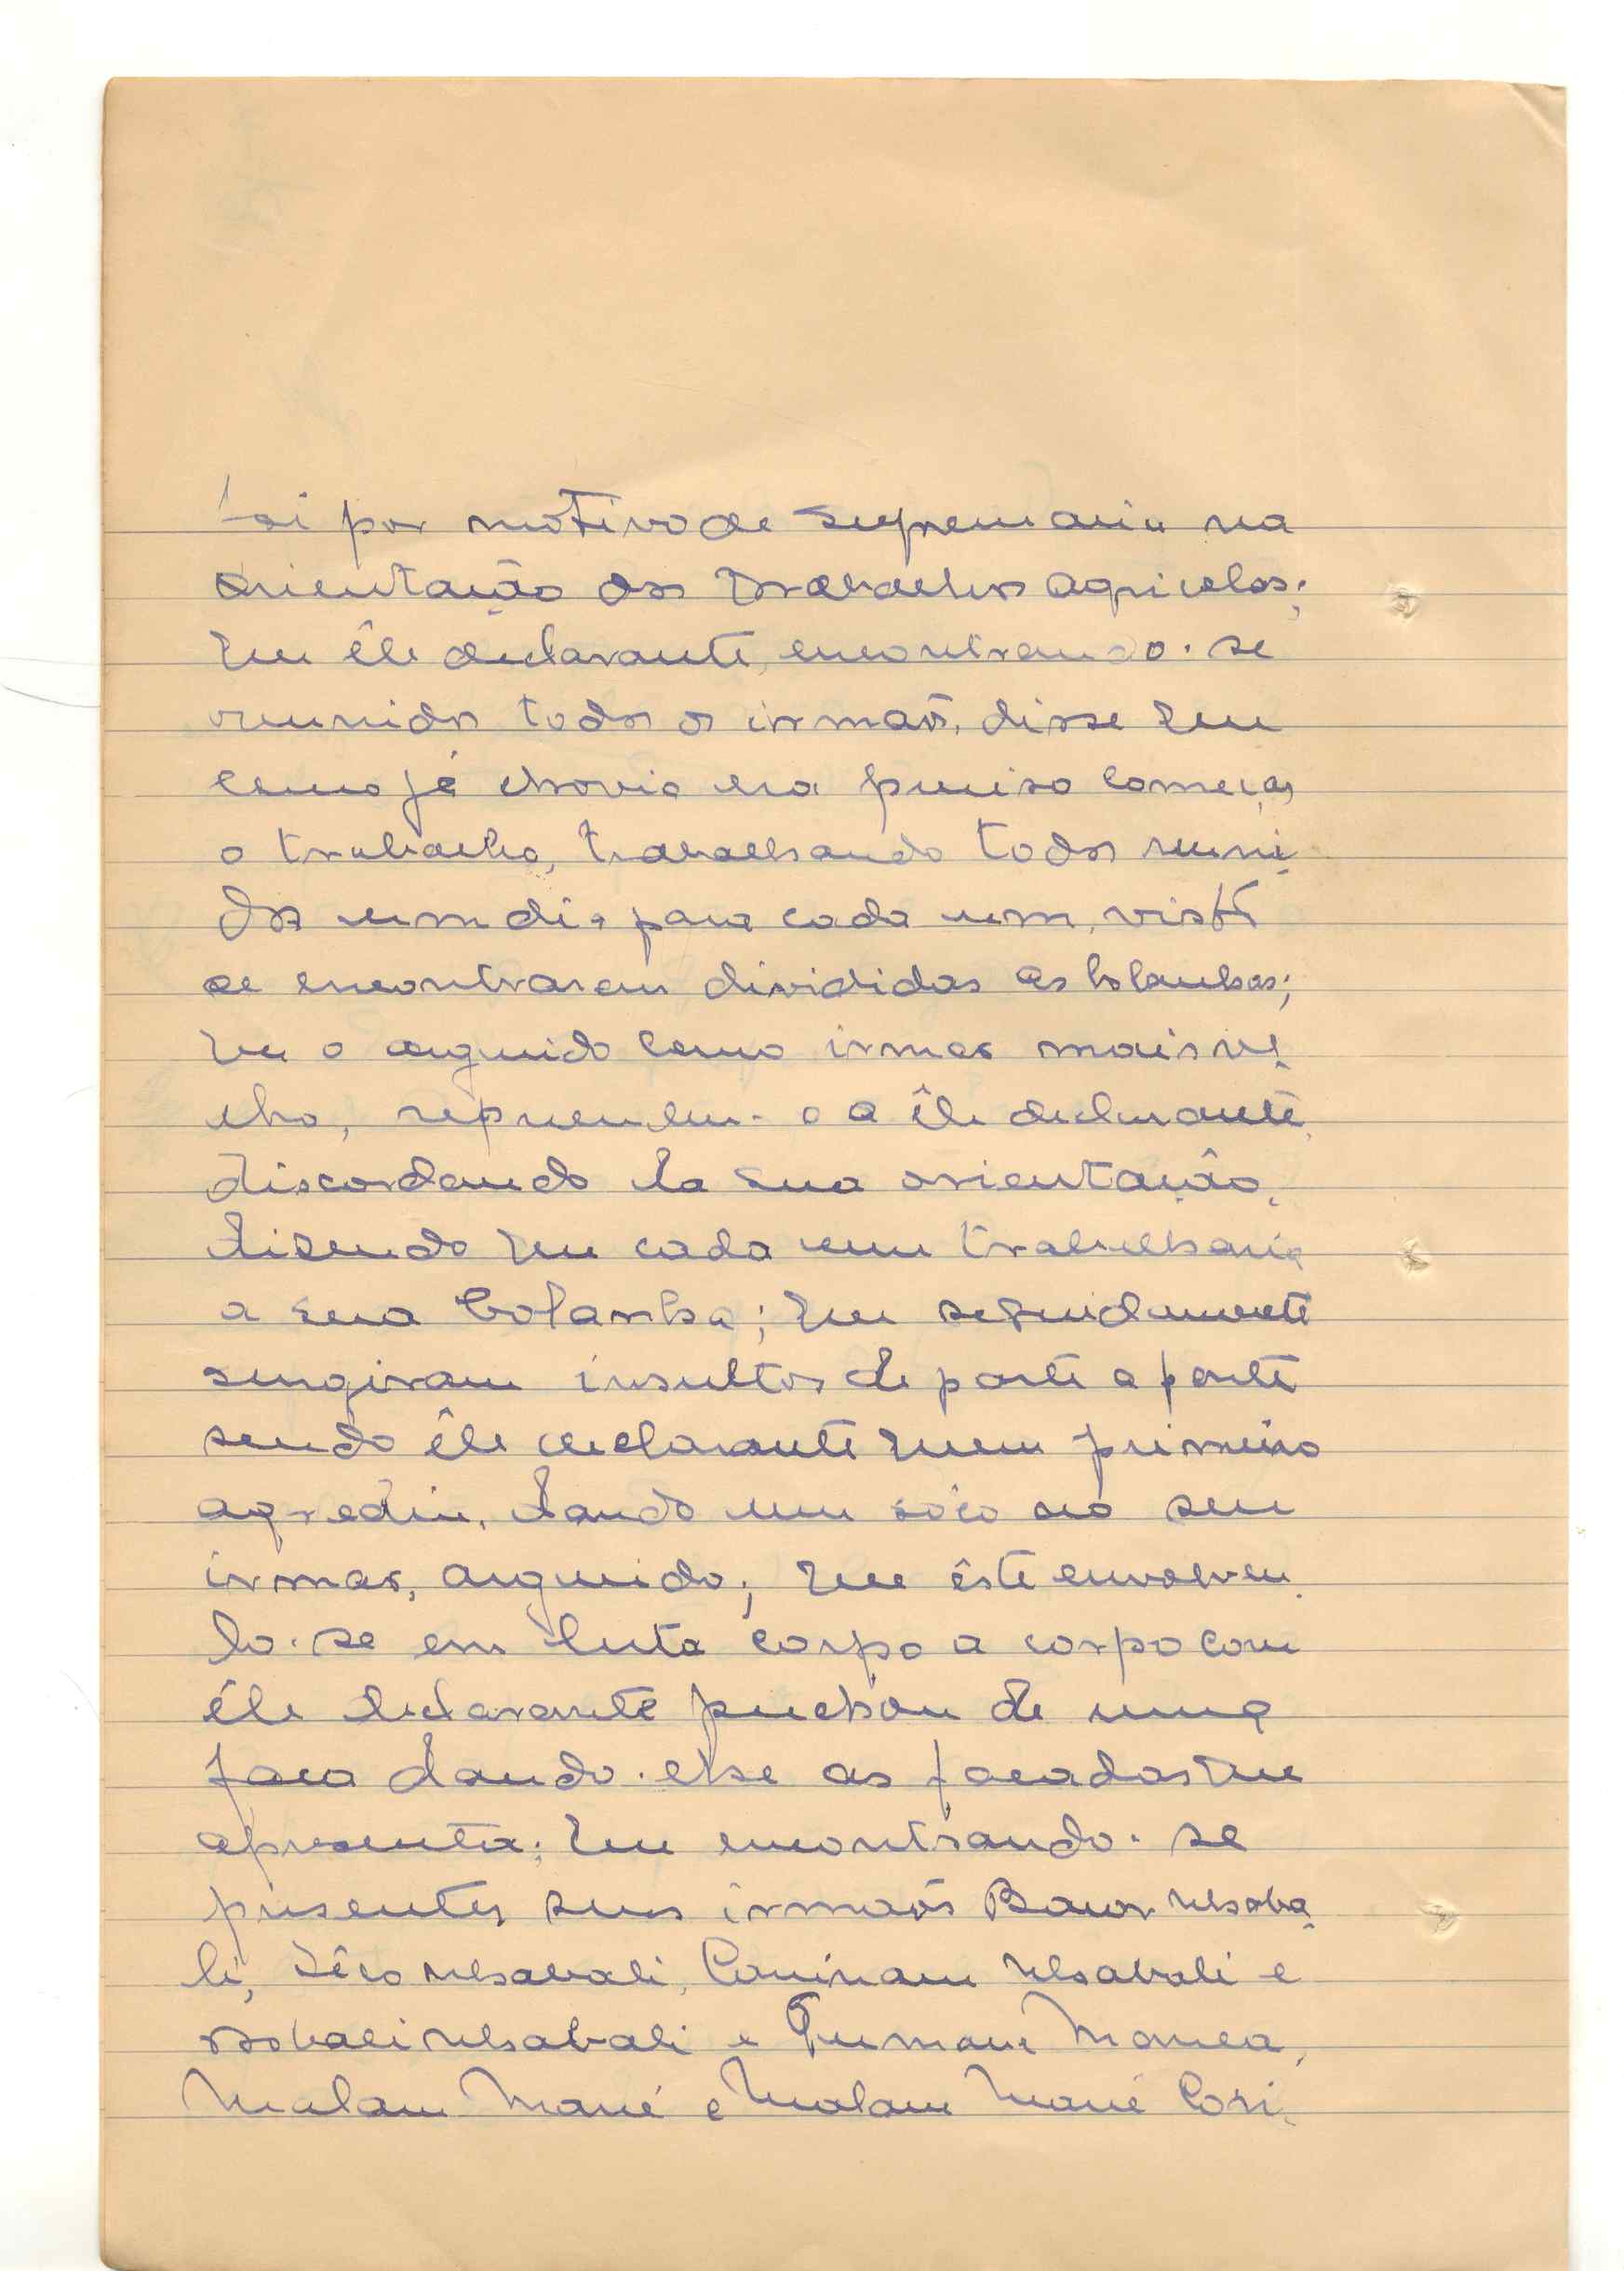 foi por motivo de supremacia na
orientação dos trabalhos agricolas;
que êle declarante, encontrando-se
reunidos todos os irmãos, disse que
como já chovia era preciso começar
o trabalho, trabalhando todos reuni-
dos um dia para cada um, visto
se encontrarem divididas as bolanhas;
que o arguido como irmão mais ve-
lho, repreendeu-o a êle declarante,
discordando da sua orientação,
dizendo que cada um trabalharia
a sua bolanha; que seguidamente
surgiram insultos de parte a parte
sendo êle declarante quem primeiro
agrediu, dando um sôco no seu
irmão, arguido; que êste envolven-
do-se em luta corpo a corpo com
êle declarante puchou de uma
faca dando-lhe as facadas que
apresenta; que encontrando-se
presentes seus irmãos Bacar
li, Sêco e
e Mané,
Malam Mané e Malam Mané